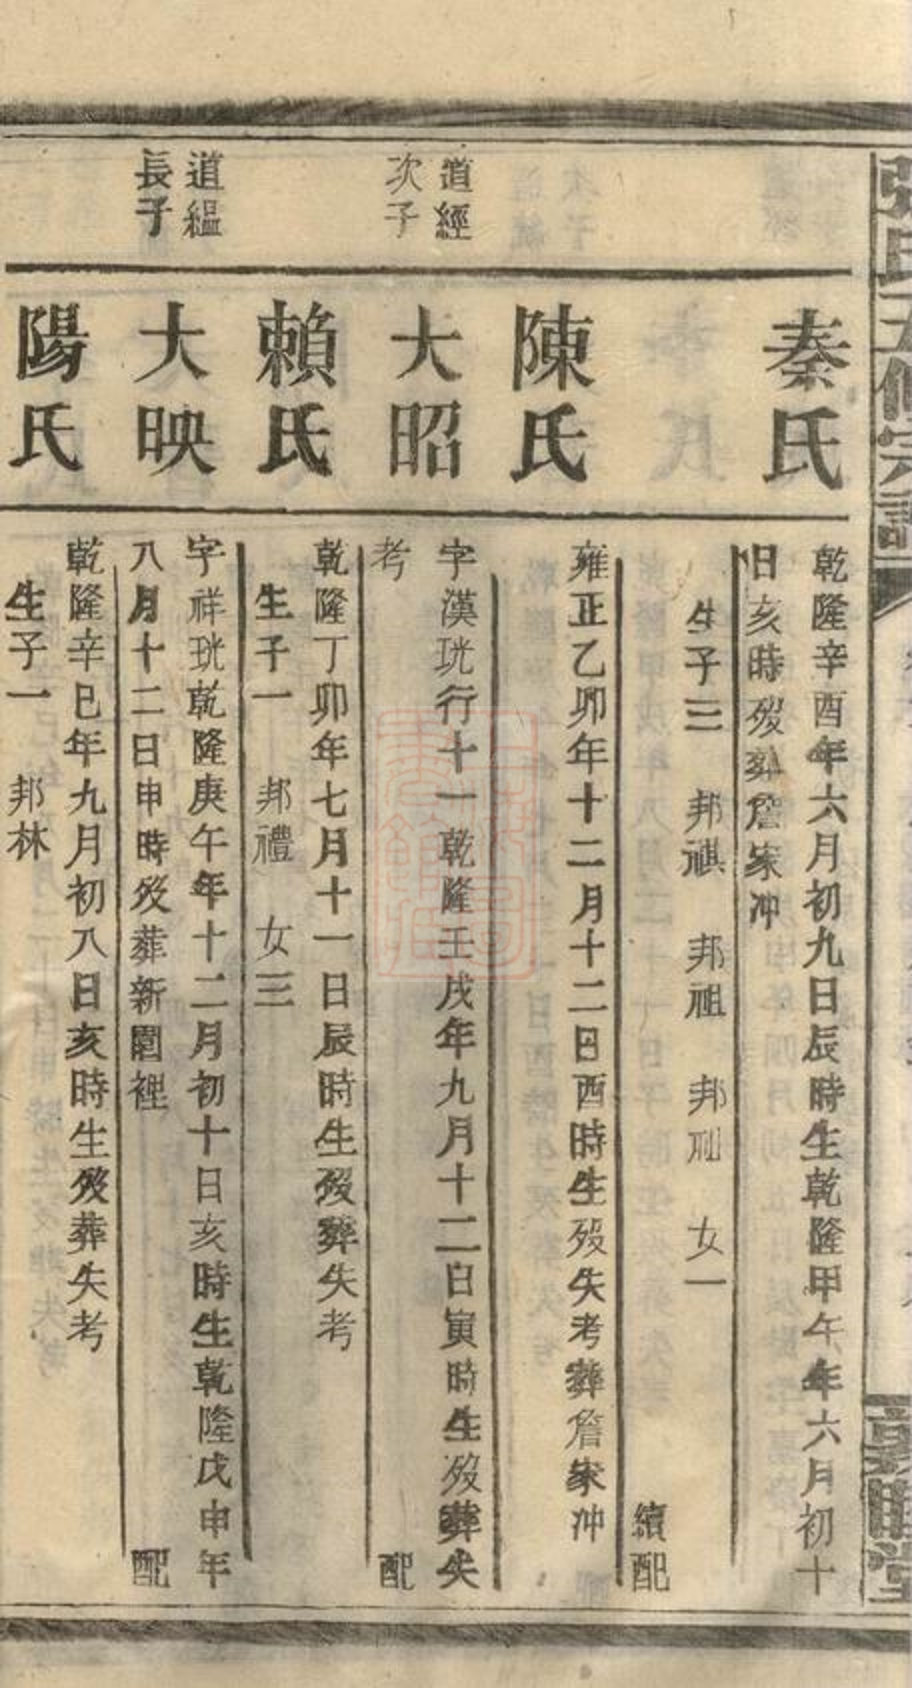 張氏五修宗譜
秦氏
乾隆辛酉年六月初九日辰時生乾隆甲午年六月初十
日亥時歿葬詹家冲
生子三 邦祺 邦祖 邦 女一
續配
陳氏
雍正乙卯年十二月十二日酉時生歿失考葬詹家冲
道經
次子
大昭
字漢珖行十一乾隆壬戌年九月十二日寅時生歿葬失
考
配
賴氏
乾隆丁卯年七月十一日辰時生歿葬失考
生子一 邦禮 女三
道縕
長子
大映
字祥珖乾隆庚午年十二月初十日亥時生乾隆戊申年
八月十二日申時歿葬新園裡
配
陽氏
乾隆辛巳年九月初八日亥時生歿葬失考
生子一 邦林